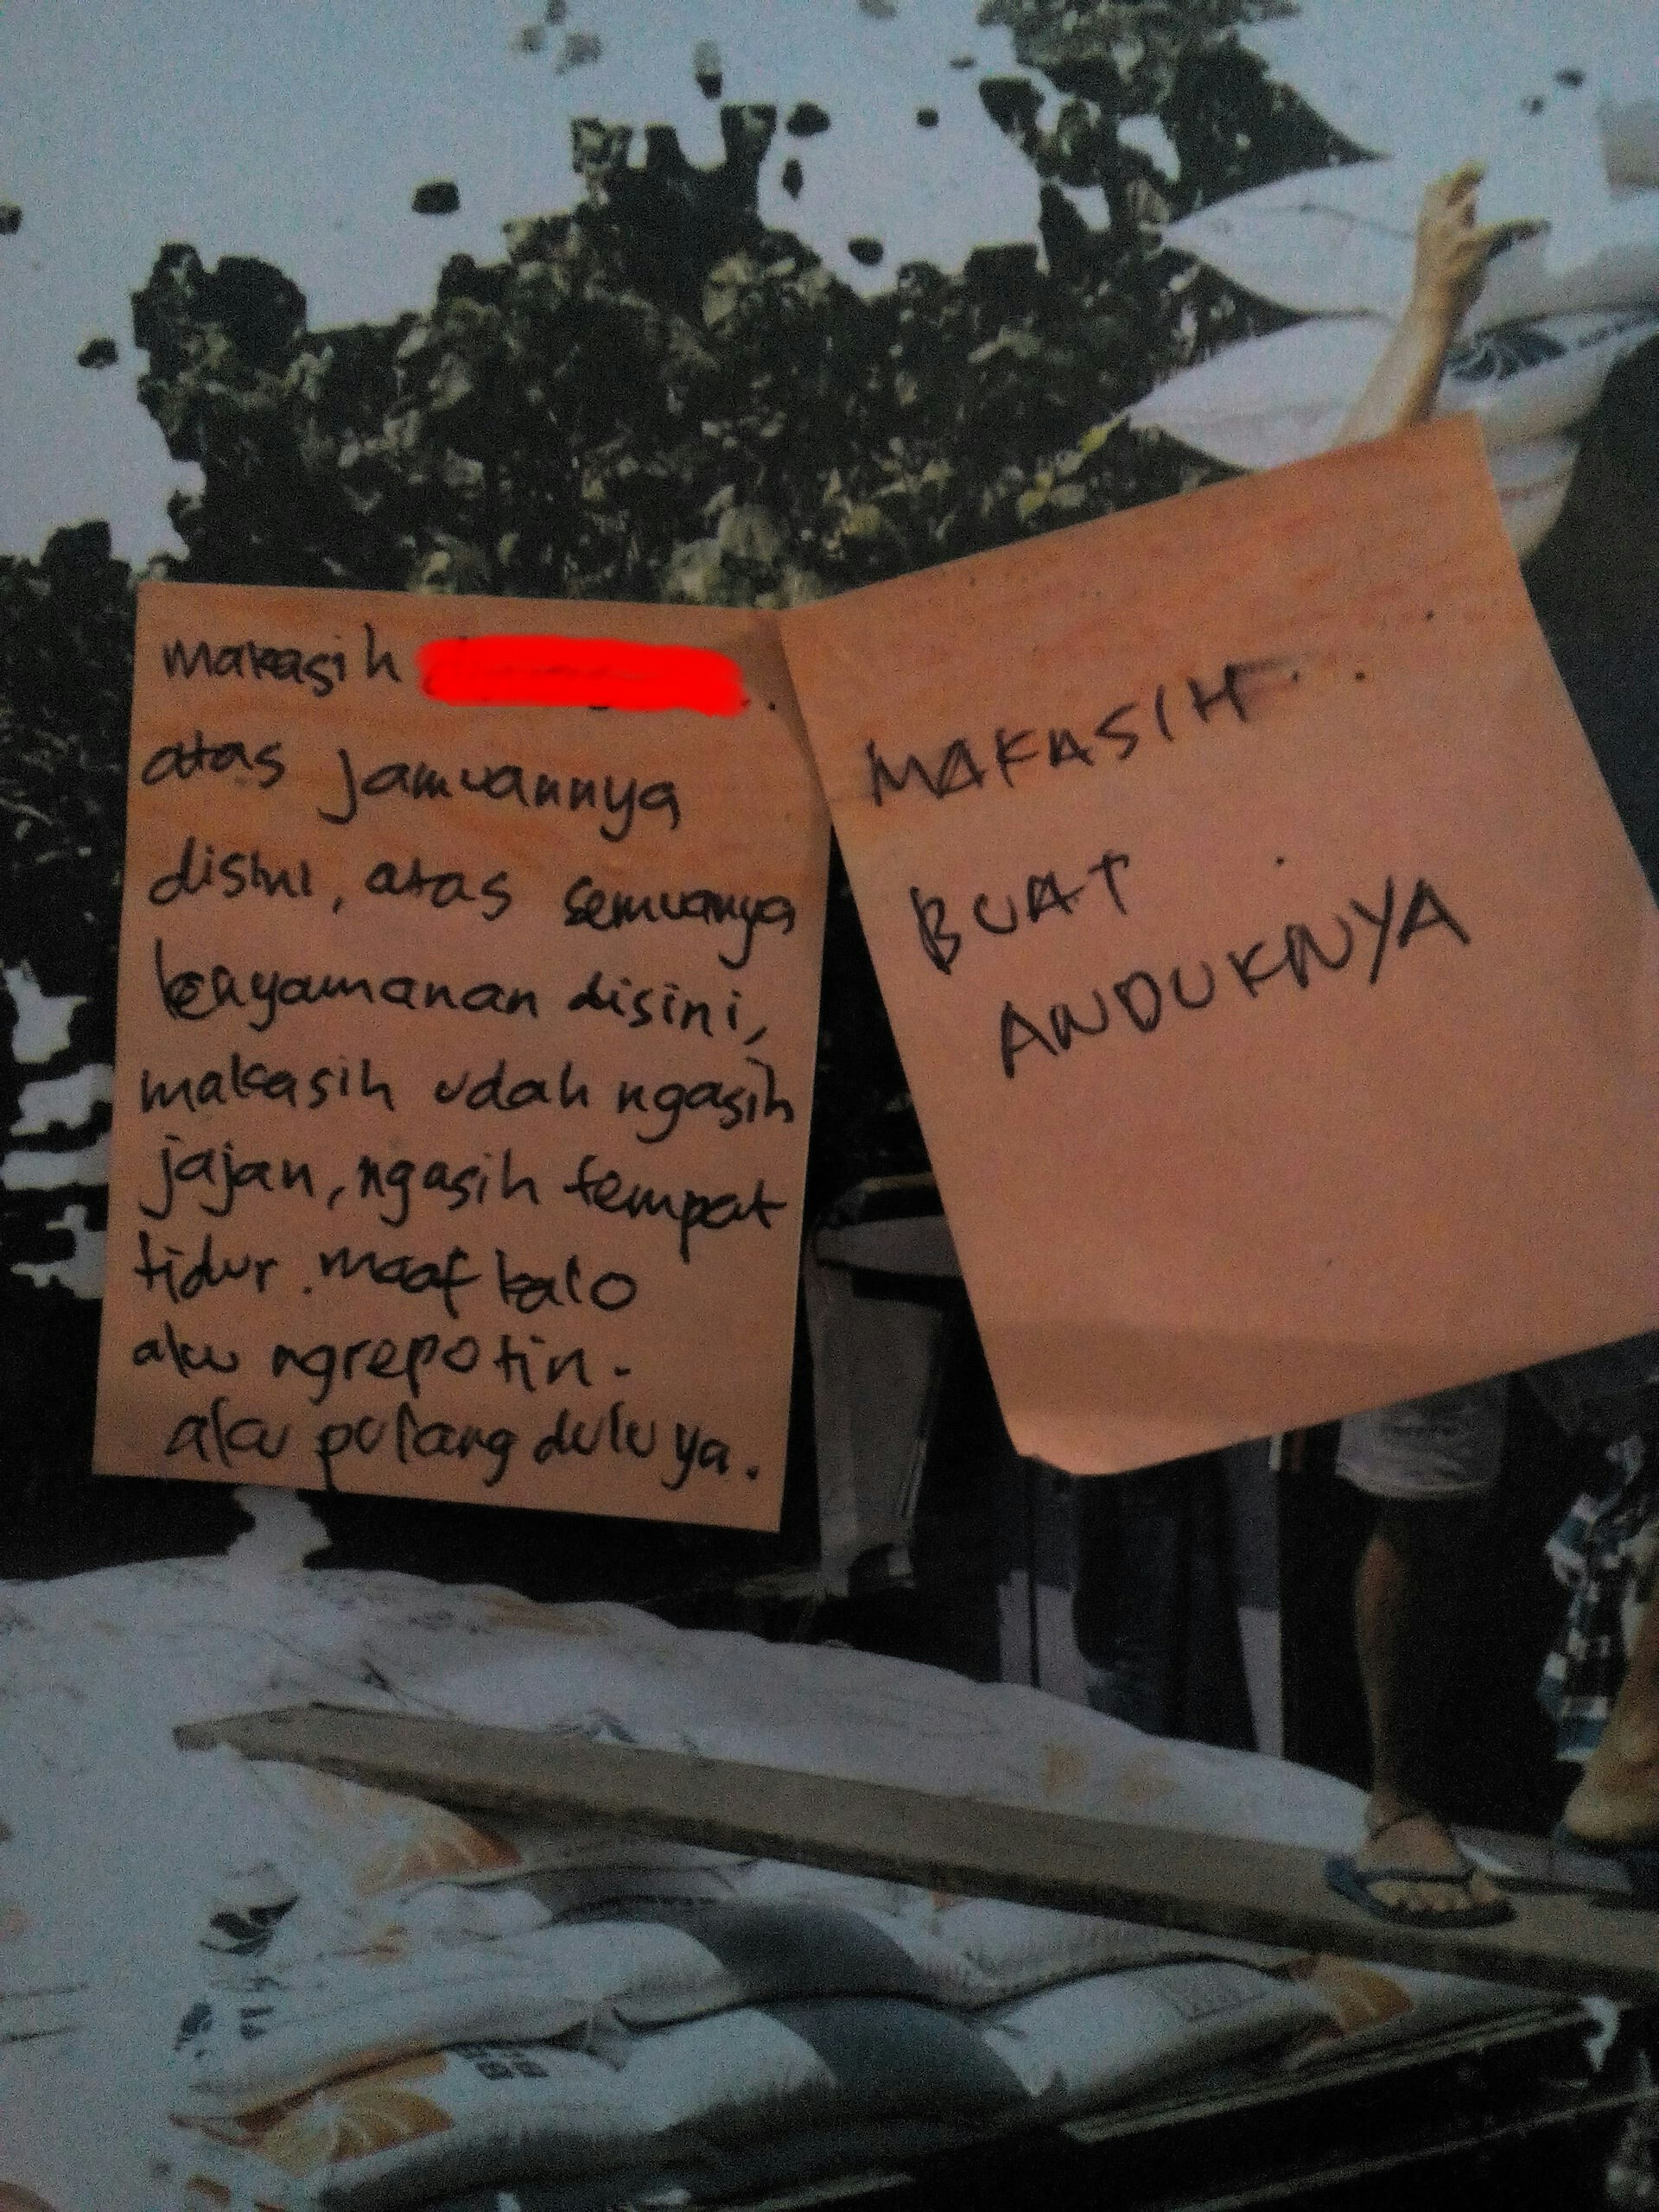 makasih
atas jamuannya
disini, atas semuanya
kenyamanan disini,
makasih udah ngasih
jajan, ngasih tempat
tidur. maaf kalo
aku ngrepotin.
aku pulang dulu ya.
MAKASIH..
BUAT
ANDUKNYA